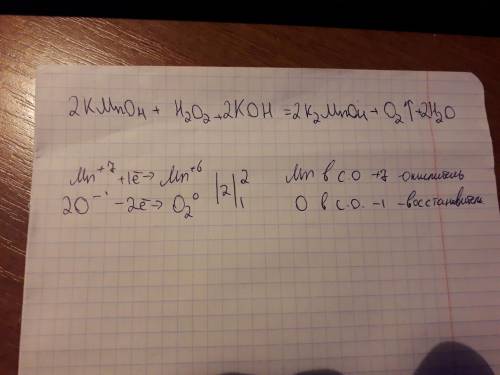 2KMnO4 + H2O2 + 2KOH = 2K2MnO4 + O2↑ + 2H2O
Mn⁺⁷ +1ē → Mn⁺⁶ |2| 2 Mn в с.о +7 - окислитель
2O⁻¹ -2ē → O2⁰ 1 O в с.о. -1 - восстановитель